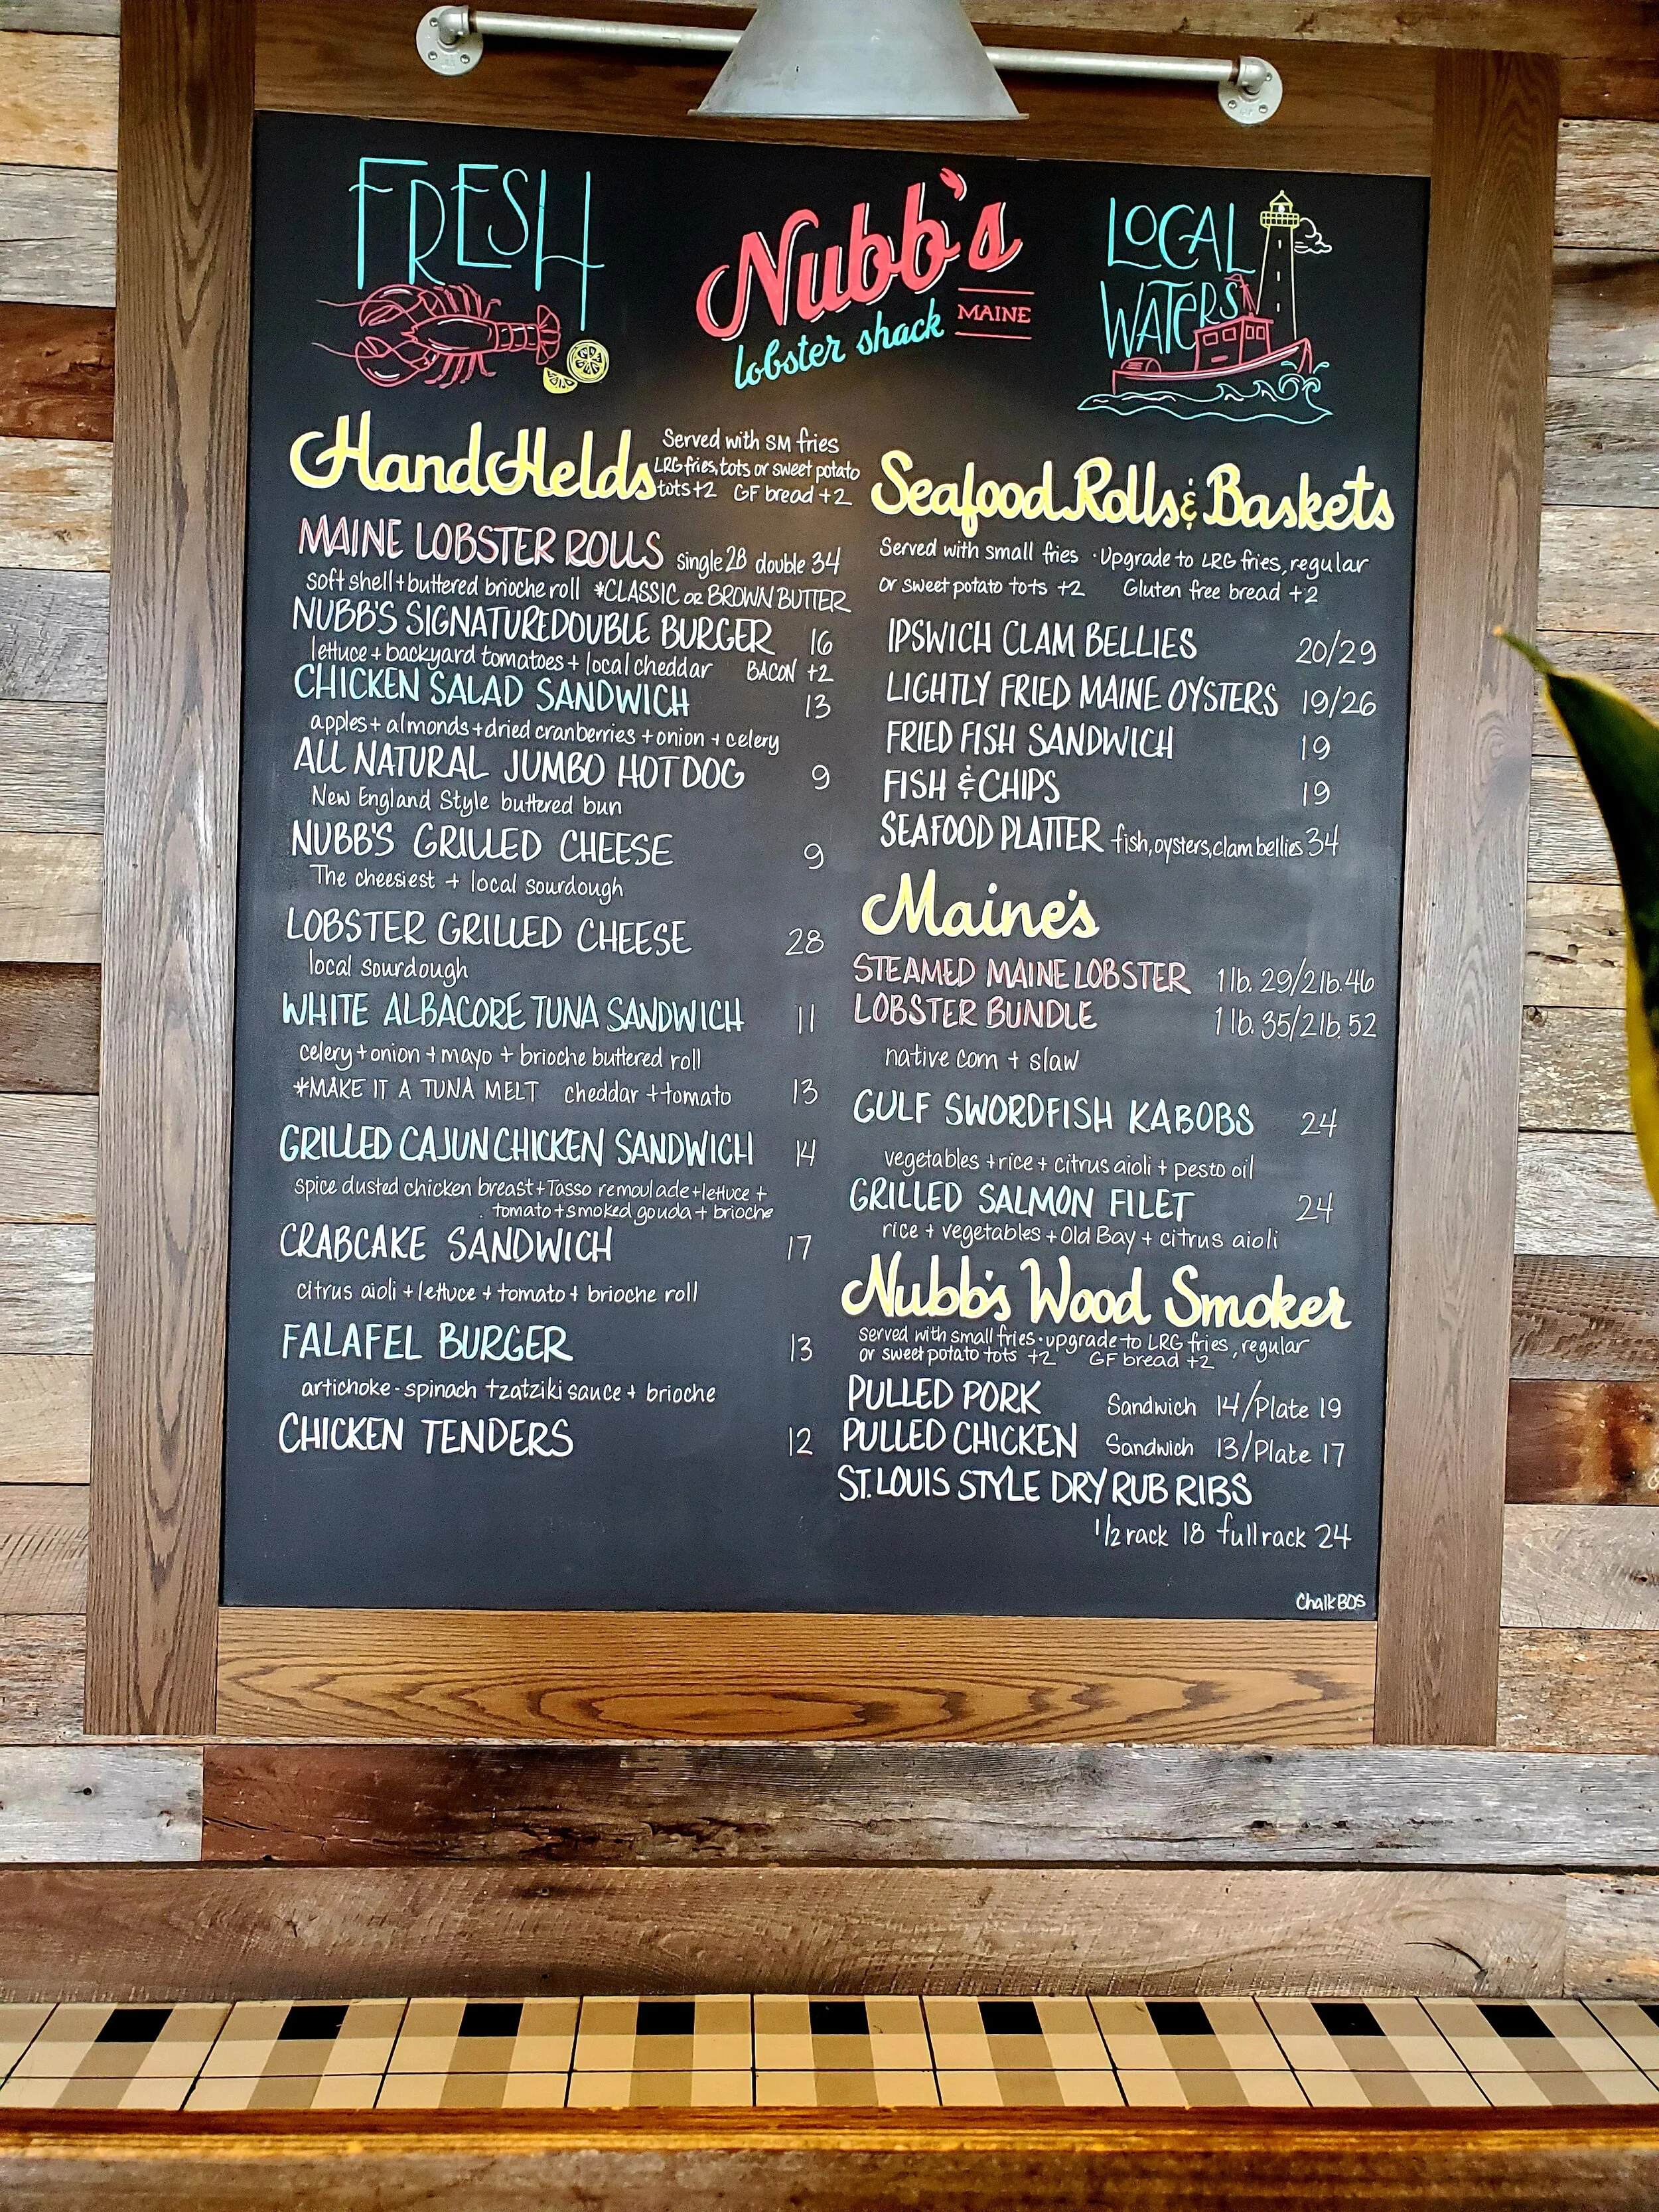 FRESH
Nubb's
lobster shack MAINE
LOCAL
WATERS
HandHelds
Served with SM fries
LRG fries, tots or sweet potato
tots +2 GF bread +2
MAINE LOBSTER ROLLS single 28 double 34
soft shell + buttered brioche roll *CLASSIC OR BROWN BUTTER
NUBB'S SIGNATURE DOUBLE BURGER 16
lettuce + backyard tomatoes + local cheddar BACON +2
CHICKEN SALAD SANDWICH 13
apples + almonds + dried cranberries + onion + celery
ALL NATURAL JUMBO HOT DOG 9
New England Style buttered bun
NUBB'S GRILLED CHEESE 9
The cheesiest + local sourdough
LOBSTER GRILLED CHEESE 28
local sourdough
WHITE ALBACORE TUNA SANDWICH 11
celery + onion + mayo + brioche buttered roll
*MAKE IT A TUNA MELT cheddar + tomato 13
GRILLED CAJUN CHICKEN SANDWICH 14
spice dusted chicken breast + Tasso remoulade + lettuce +
tomato + smoked gouda + brioche
CRABCAKE SANDWICH 17
citrus aioli + lettuce + tomato + brioche roll
FALAFEL BURGER 13
artichoke - spinach + zatziki sauce + brioche
CHICKEN TENDERS 12
Seafood Rolls & Baskets
Served with small fries · Upgrade to LRG fries, regular
or sweet potato tots +2 Gluten free bread +2
IPSWICH CLAM BELLIES 20/29
LIGHTLY FRIED MAINE OYSTERS 19/26
FRIED FISH SANDWICH 19
FISH & CHIPS 19
SEAFOOD PLATTER fish, oysters, clam bellies 34
Maine's
STEAMED MAINE LOBSTER 1 lb. 29/2 lb. 46
LOBSTER BUNDLE 1 lb. 35/2 lb. 52
native corn + slaw
GULF SWORDFISH KABOBS 24
vegetables + rice + citrus aioli + pesto oil
GRILLED SALMON FILET 24
rice + vegetables + Old Bay + citrus aioli
Nubb's Wood Smoker
served with small fries · upgrade to LRG fries, regular
or sweet potato tots +2 GF bread +2
PULLED PORK Sandwich 14/Plate 19
PULLED CHICKEN Sandwich 13/Plate 17
ST. LOUIS STYLE DRY RUB RIBS
1/2 rack 18 full rack 24
ChalkBOS